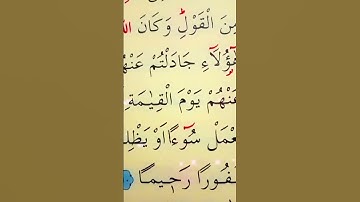 مِنَ الْقَوْلِ وَكَانَ اللّٰ
هٰٓؤُلَٓاءِ جَادَلْتُمْ عَنْهُ
عَنْهُمْ يَوْمَ الْقِيٰمَةِ
يَعْمَلْ سُٓوءًا اَوْ يَظْلِ
غَفُورًا رَح۪يمًا